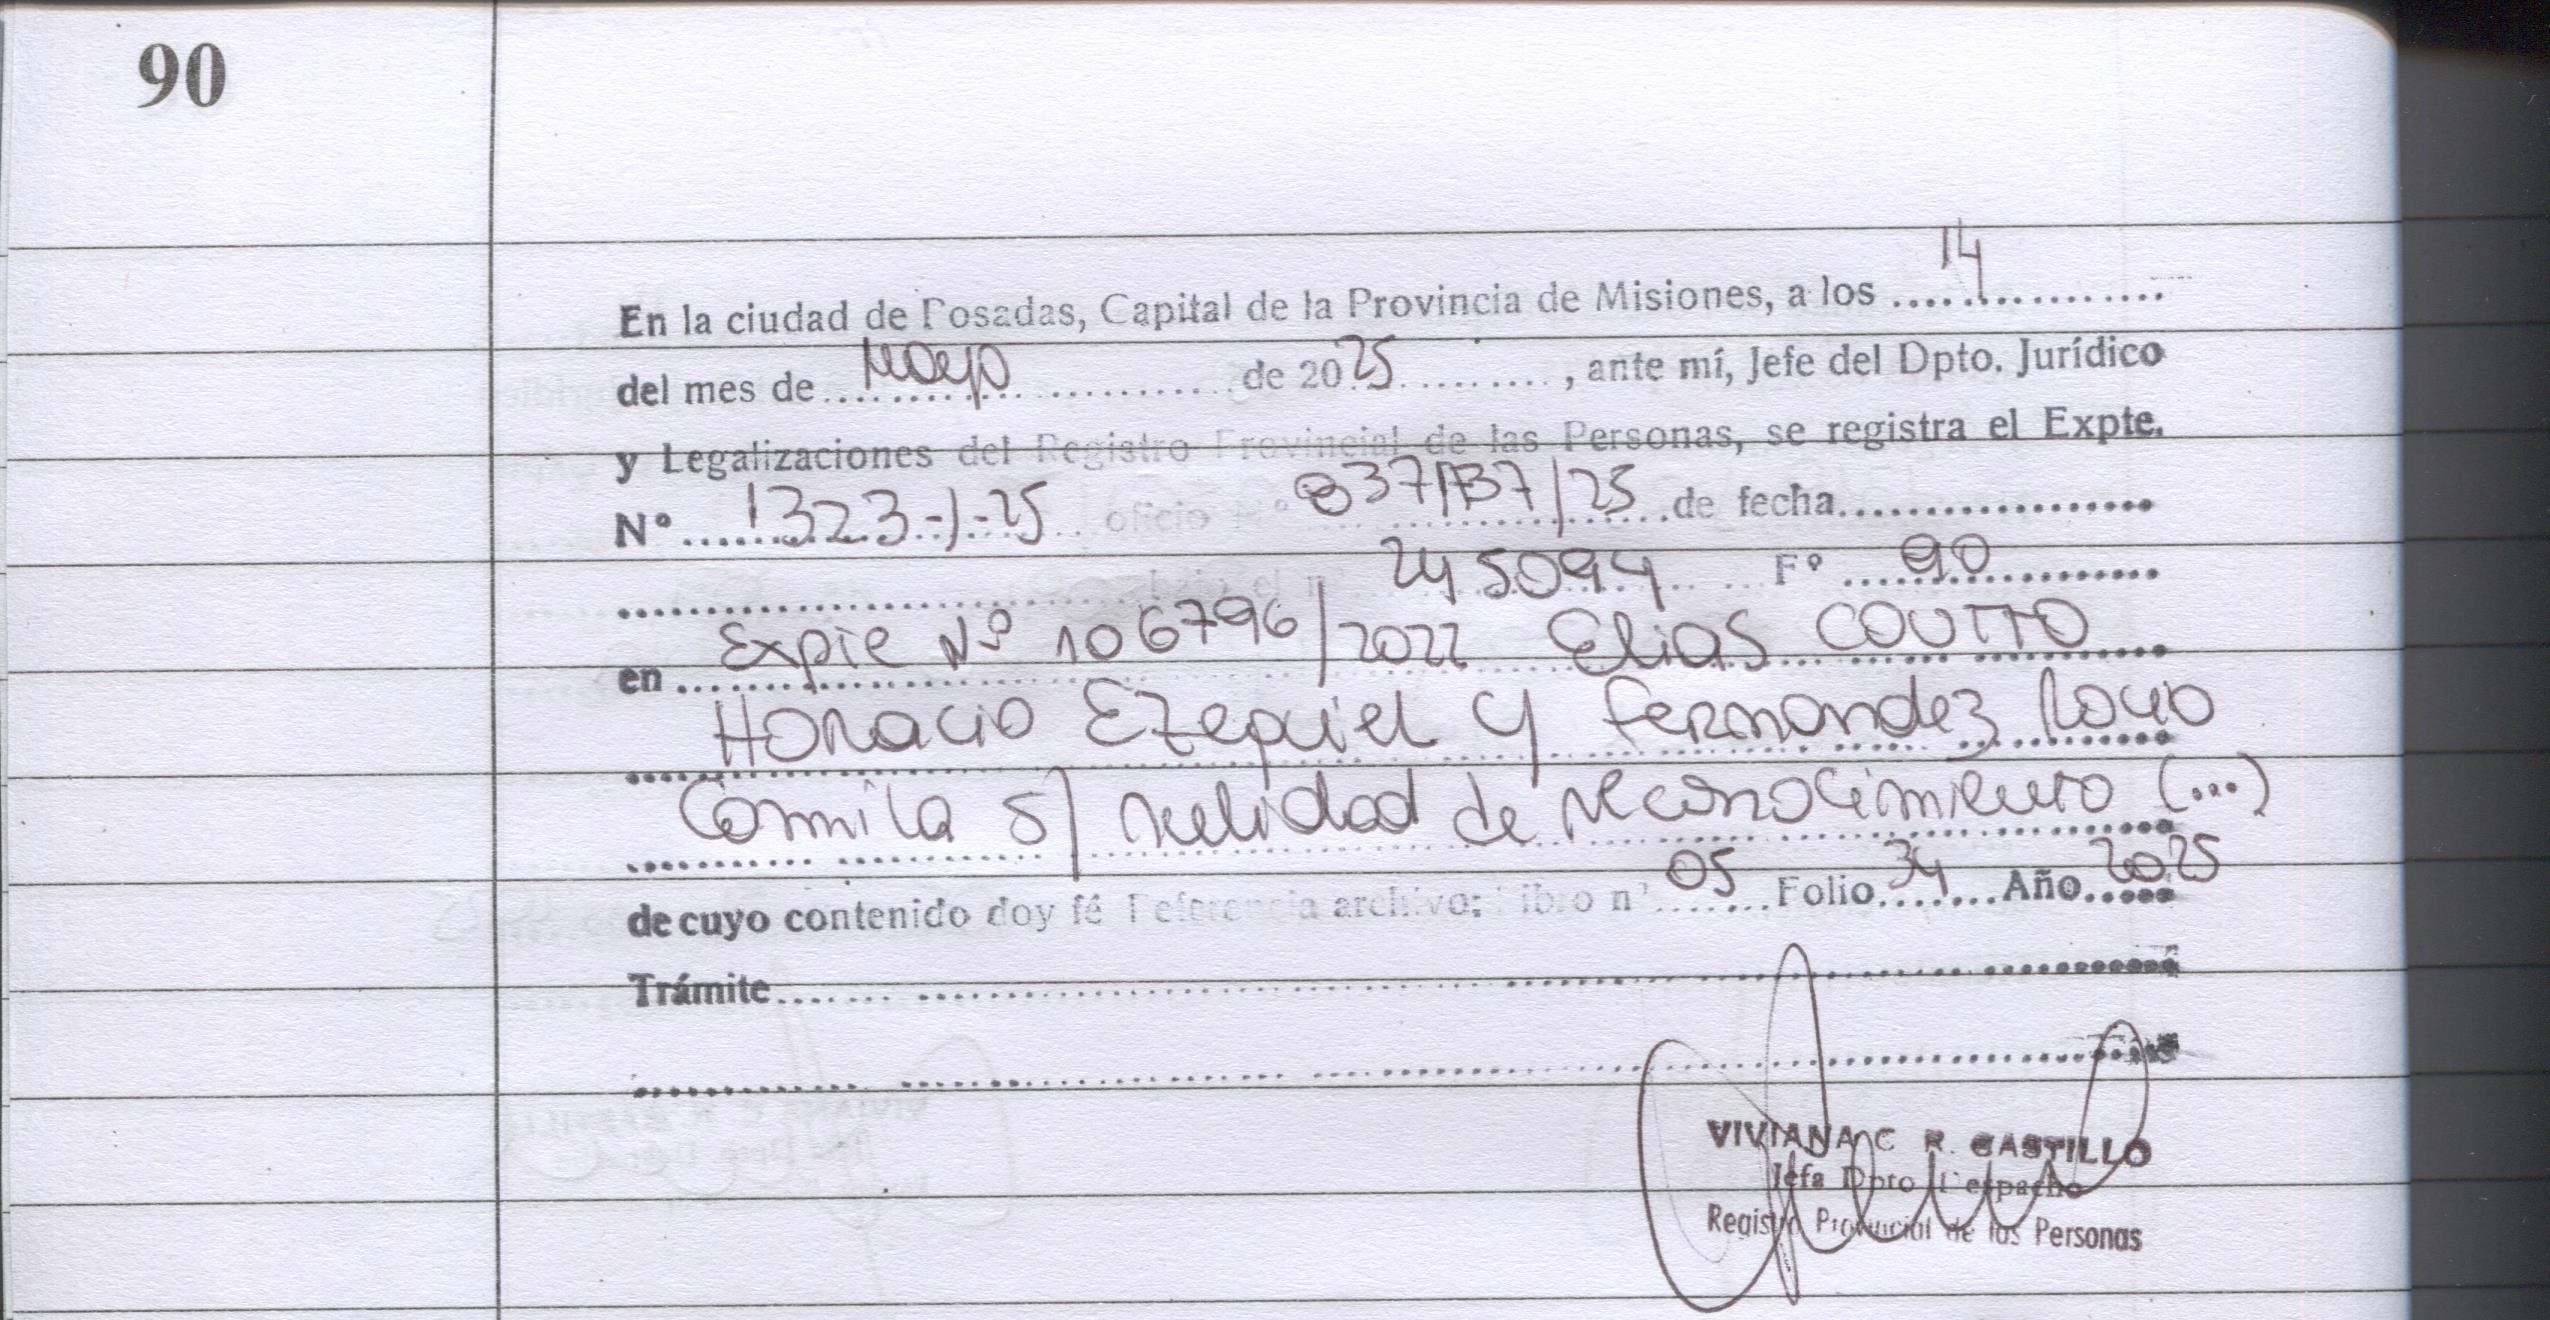 90
En la ciudad de Posadas, Capital de la Provincia de Misiones, a los ....14............
del mes de ....Mayo............ de 2025 .........., ante mí, Jefe del Dpto. Jurídico
y Legalizaciones del Registro Provincial de las Personas, se registra el Expte.
N° ....1323-J-25.... oficio N° ....837/137/25.... de fecha..................
.............................. bajo el n° ....245094.... F° ....90............
en Expte Nº 106796/2022 Elias COUTTO
Horacio Ezequiel y Fernandez
Camila S/ nulidad de reconocimiento (...)
de cuyo contenido doy fé Referencia archivo: Libro n° 05 Folio 34 Año 2025
Trámite..............................
VIVIANA C R. CASTILLO
Jefa Dpto Despacho
Registro Provincial de las Personas